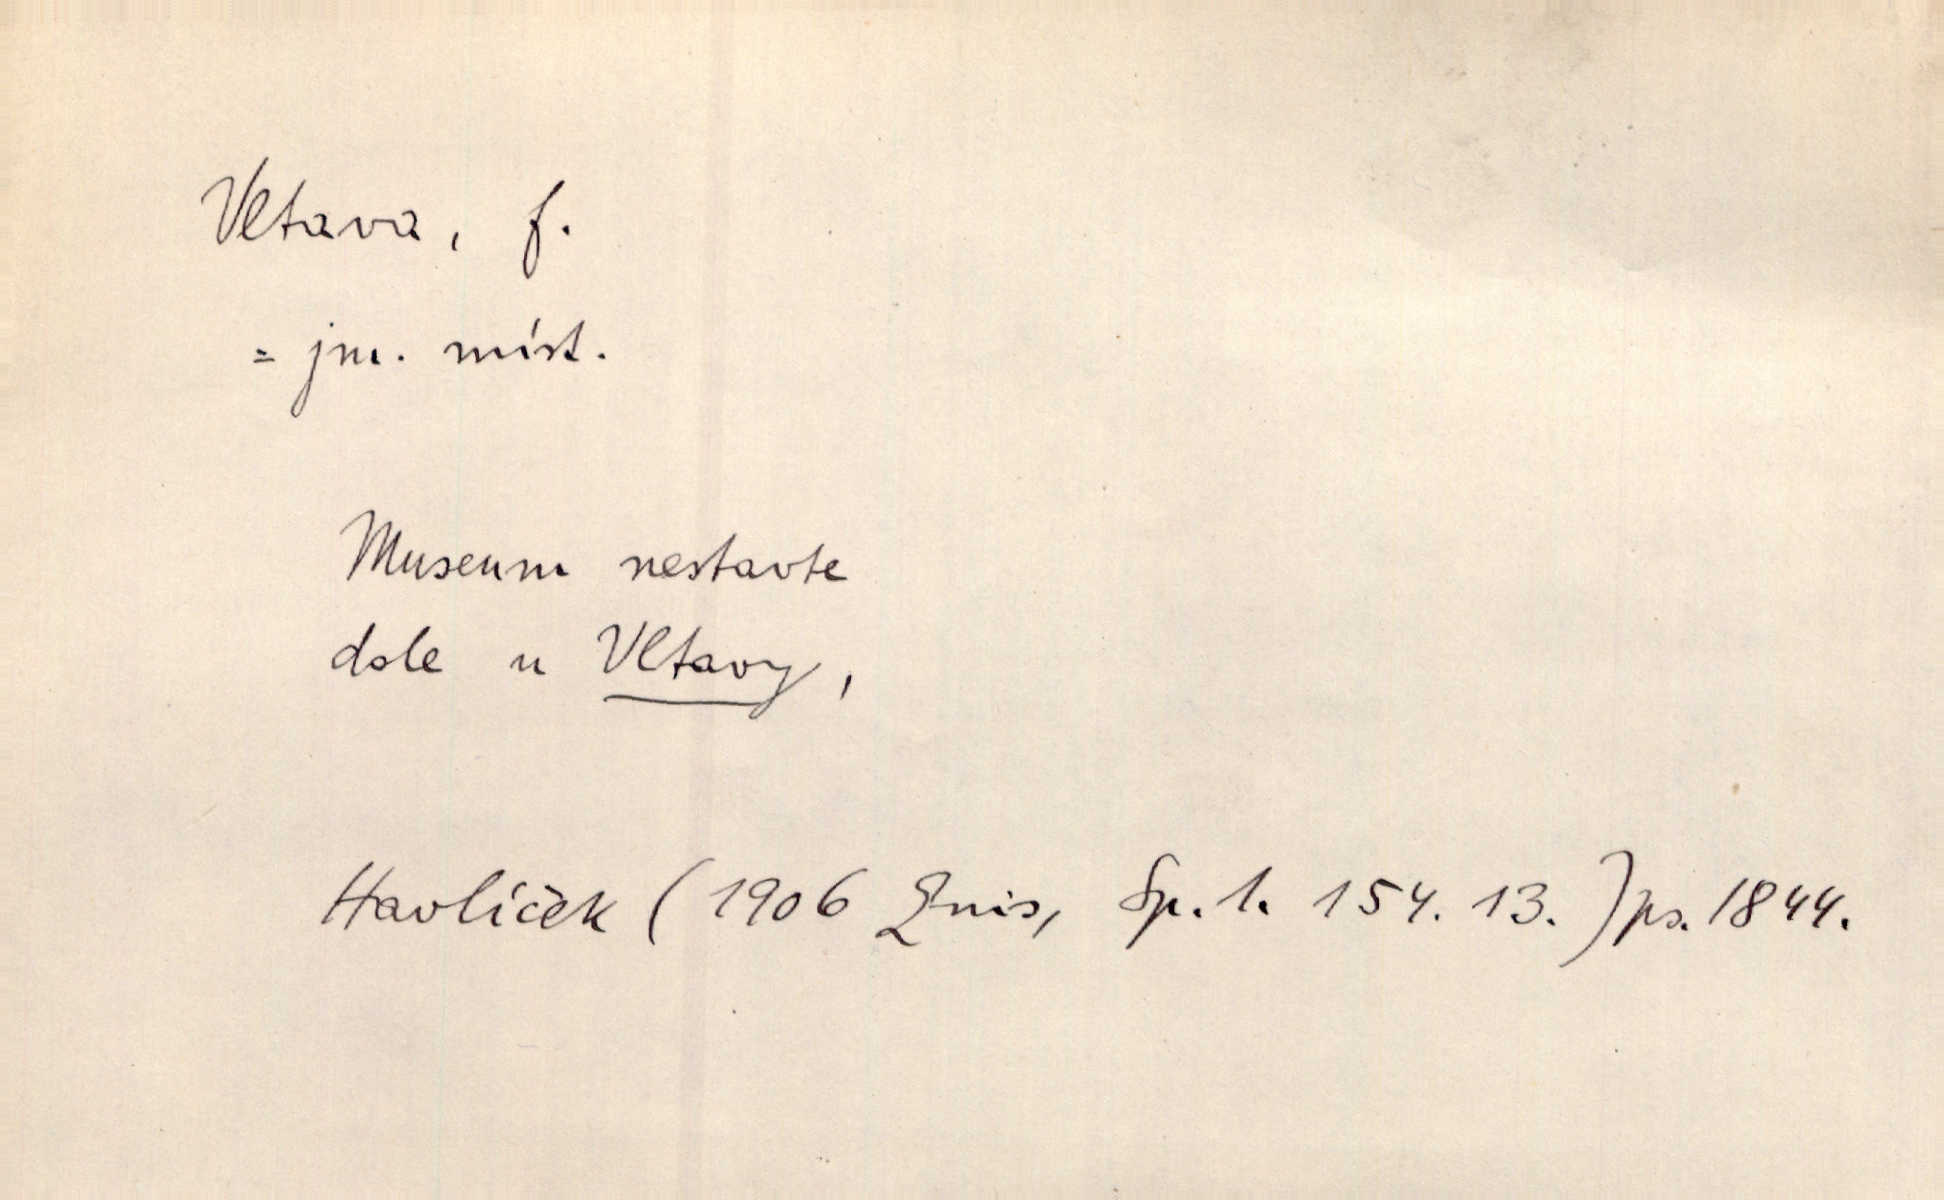 Vltava, f.
= jm. míst.
Museum nestavte
dole u Vltavy,
Havlíček (1906 Quis, Sp. 1. 154. 13.) ps. 1844.